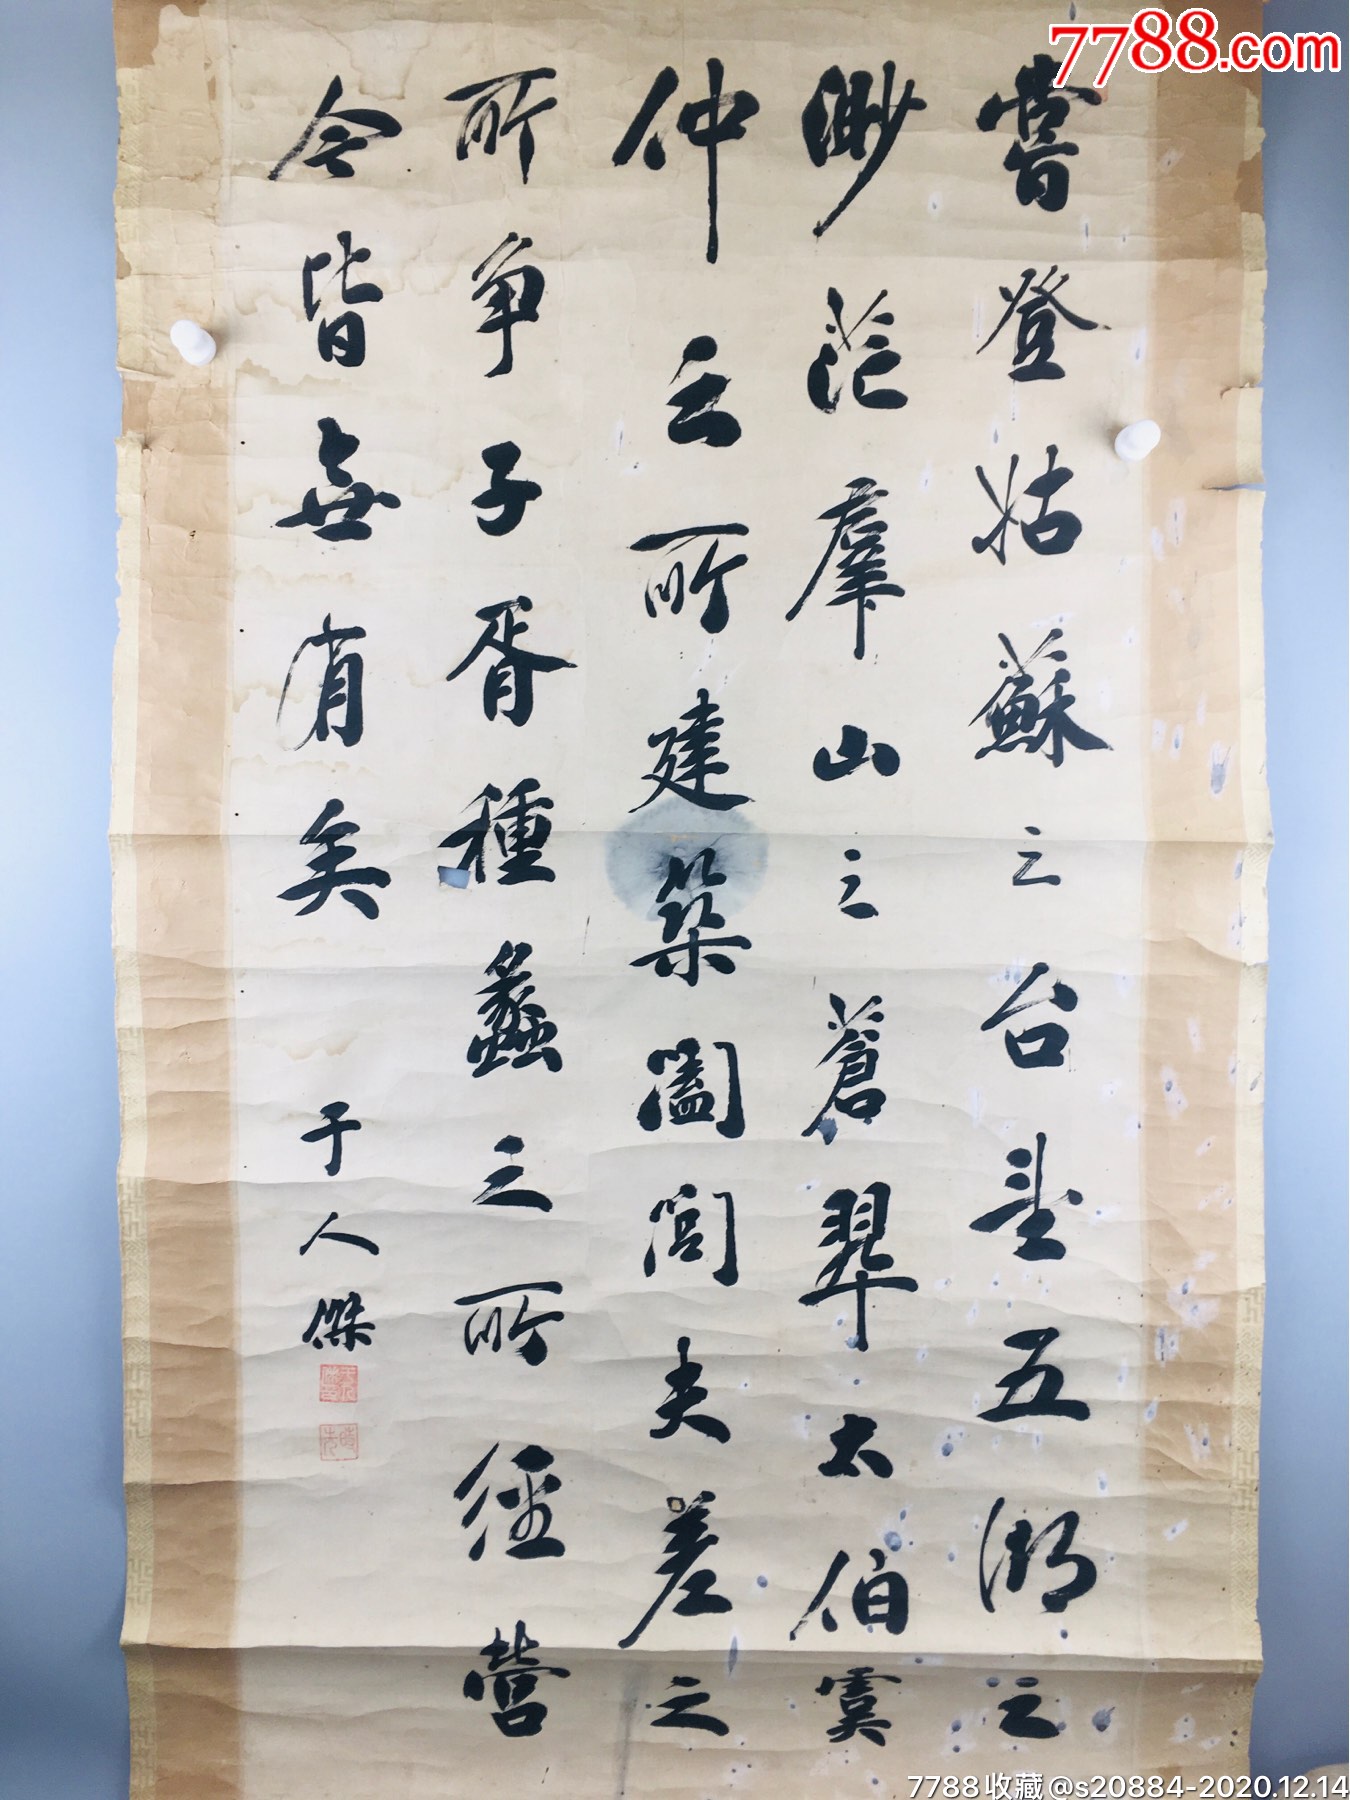 7788.com
嘗登姑蘇之台望五湖之
渺茫羣山之蒼翠太伯虞
仲之所建築闔閭夫差之
所争子胥種蠡之所經營
今皆無有矣
于人傑
7788收藏@s20884-2020.12.14